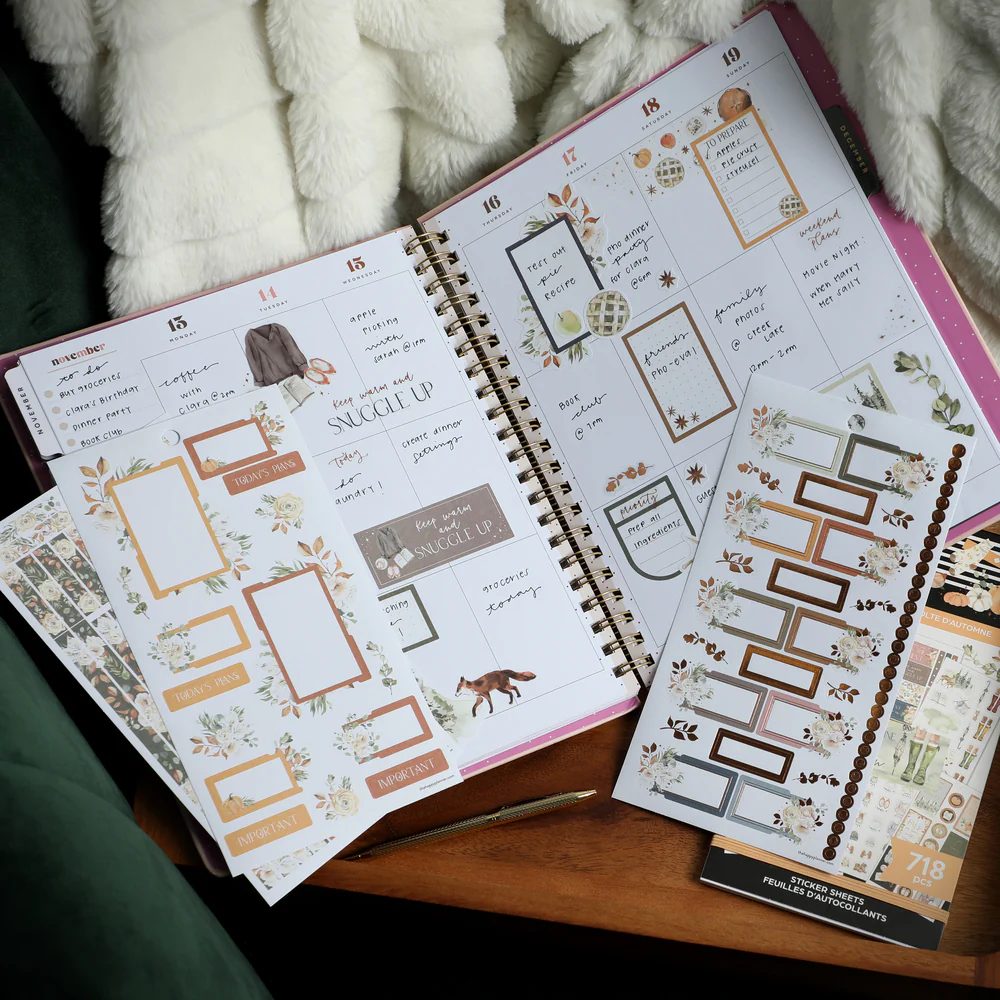 november
to do
BUY GROCERIES
Clara's Birthday
Dinner party
Book Club
NOVEMBER
13
MONDAY
coffee
with
Clara @ 2pm
14
TUESDAY
15
WEDNESDAY
apple
picking
with
sarah @ 1pm
keep warm and
SNUGGLE UP
Today
do
aundry!
create dinner
settings
keep warm
and
SNUGGLE UP
ching
!
groceries
today
16
THURSDAY
TEST OUT
pie
RECIPE
BOOK
club
@ 7pm
priority
prep all
ingredients
17
FRIDAY
Pho dinner
party
for Clara
@6pm
friends
pho-eva!
18
SATURDAY
family
photos
@ creek
lake
12pm - 2pm
19
SUNDAY
TO PREPARE
APPLES
PIE CRUST
STREUSEL
weekend
plans
Movie Night:
when Harry
Met Sally
DECEMBER
TODAY'S PLANS
TODAY'S PLANS
IMPORTANT
IMPORTANT
thehappyplanner.com
thehappyplanner.com
LTE D'AUTOMNE
718
pcs
STICKER SHEETS
FEUILLES D'AUTOCOLLANTS